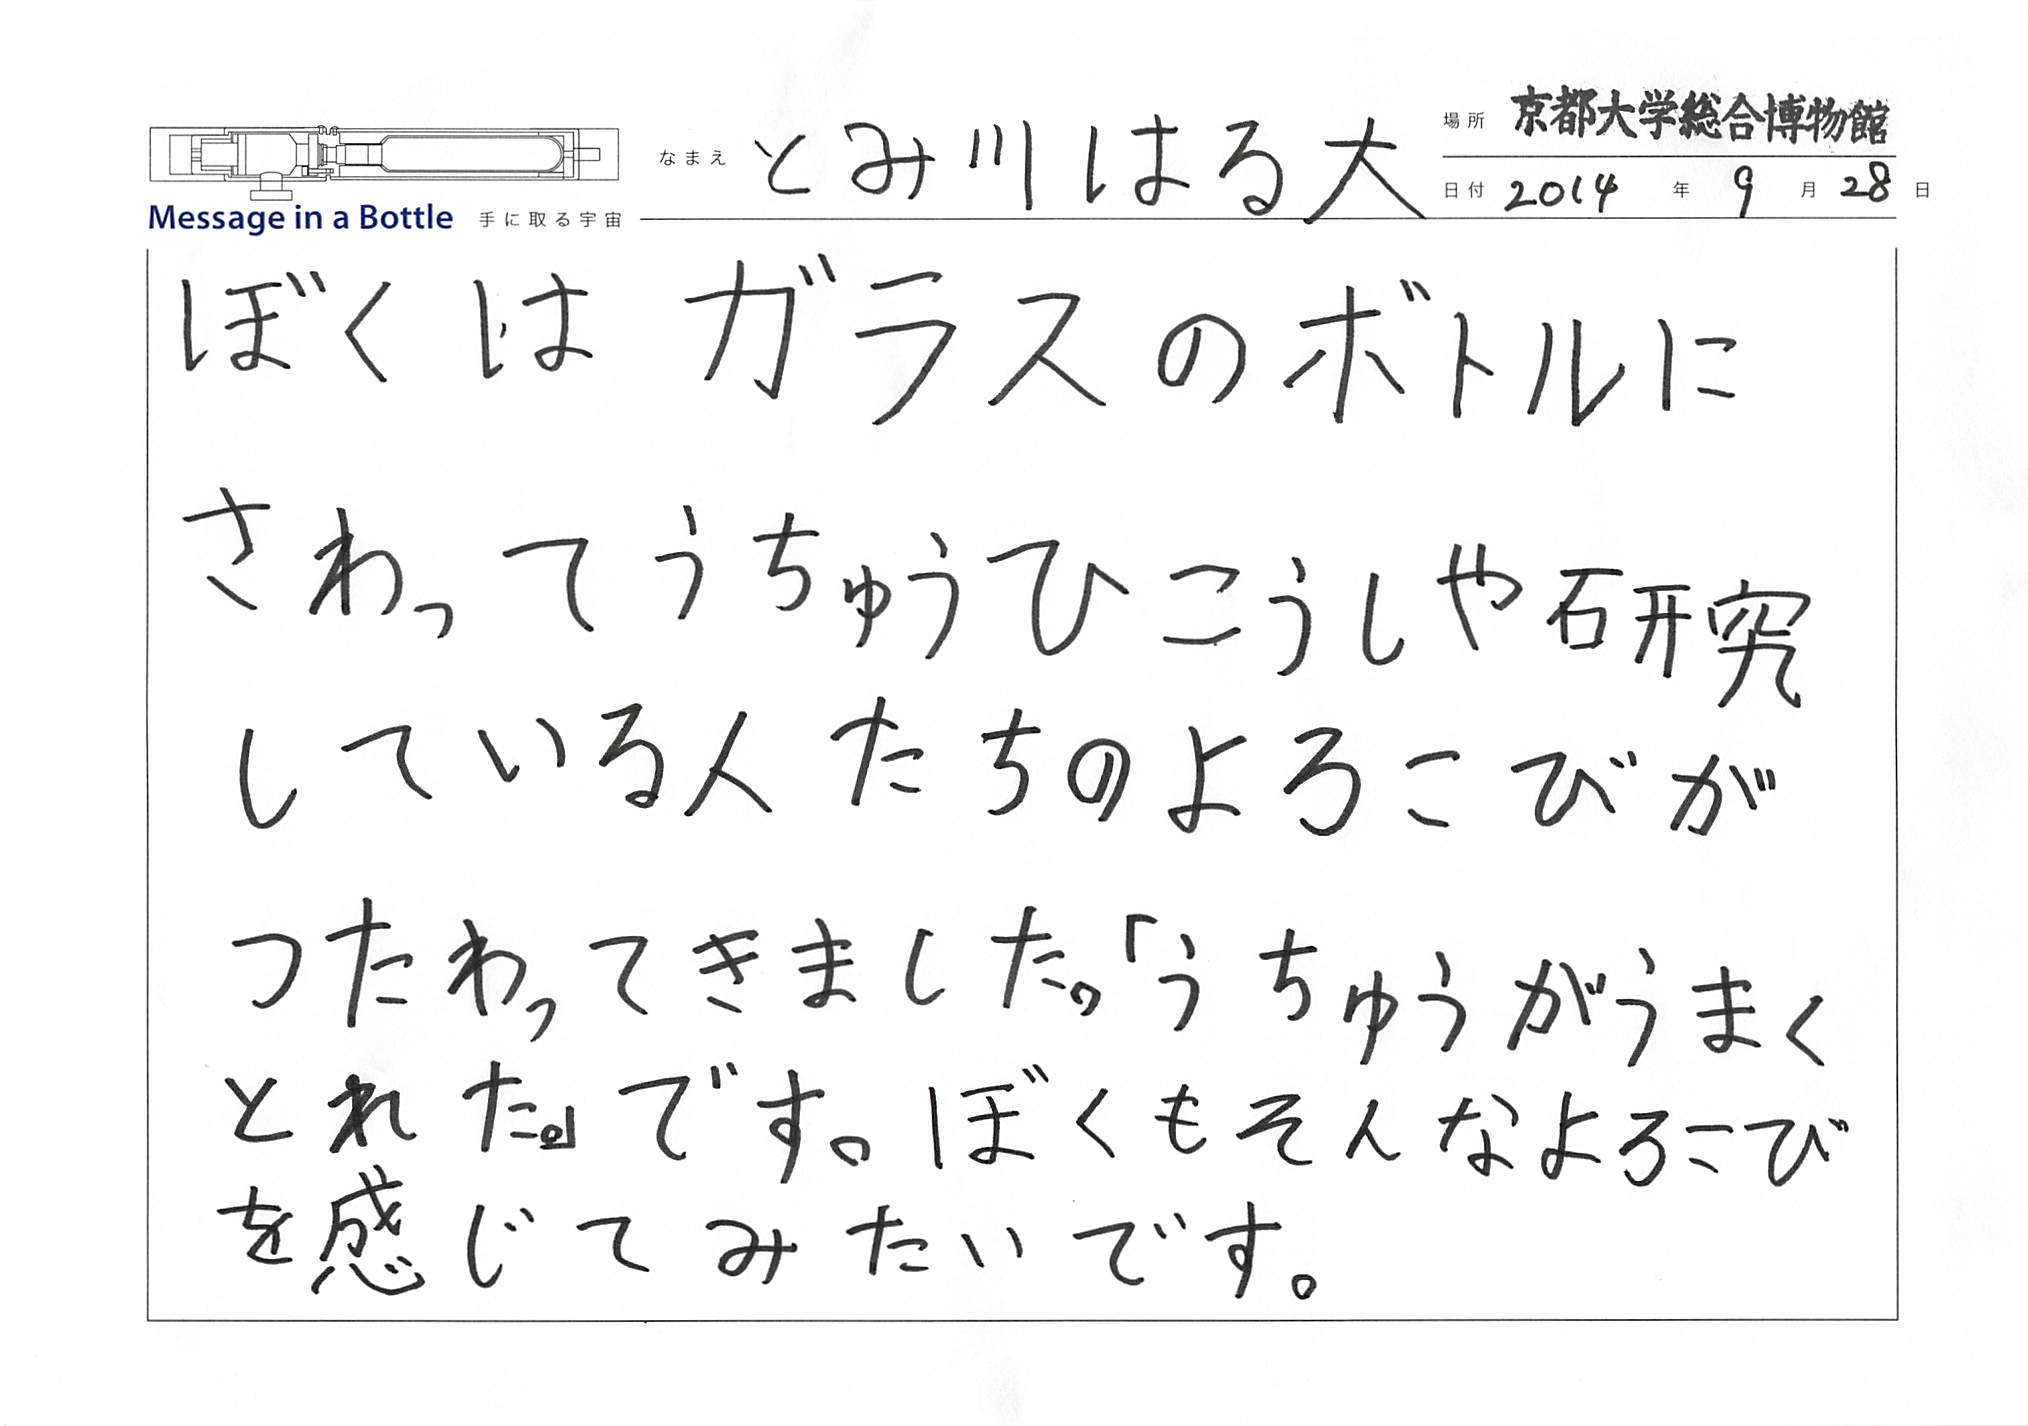 なまえ とみ川はる大
場所 京都大学総合博物館
日付 2014 年 9 月 28 日
Message in a Bottle 手に取る宇宙
ぼくはガラスのボトルに
さわってうちゅうひこうしや研究
している人たちのよろこびが
つたわってきました。「うちゅうがうまく
とれた。」です。ぼくもそんなよろこび
を感じてみたいです。